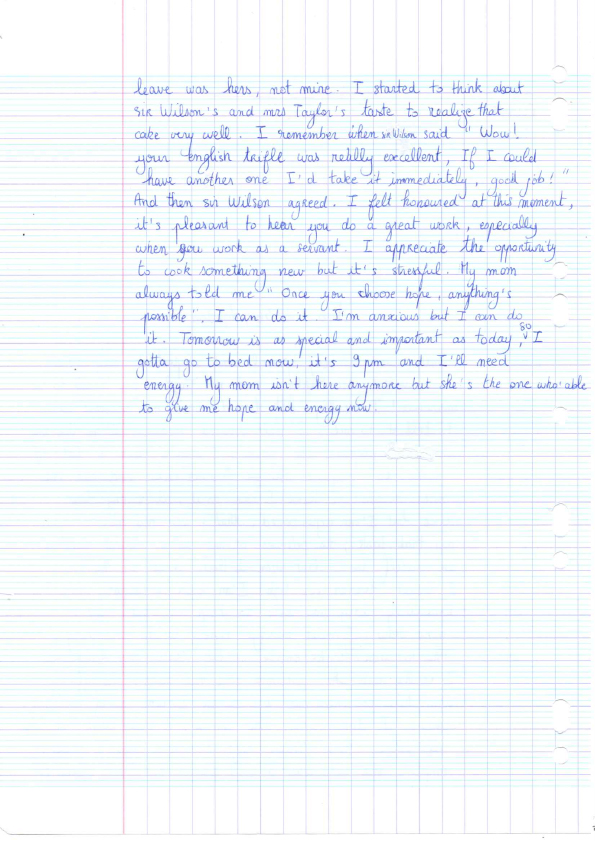 leave was hers, not mine. I started to think about
sir Wilson's and mrs Taylor's taste to realize that
cake very well. I remember when sir Wilson said " Wow!
your english trifle was really excellent, If I could
have another one I'd take it immediately, good job! "
And then sir Wilson agreed. I felt honoured at this moment,
it's pleasant to hear you do a great work, especially
when you work as a servant. I appreciate the opportunity
to cook something new but it's stressful. My mom
always told me " Once you choose hope, anything's
possible". I can do it. I'm anxious but I can do
it. Tomorrow is as special and important as today, so I
gotta go to bed now, it's 9pm and I'll need
energy. My mom isn't here anymore but she's the one who' able
to give me hope and energy now.